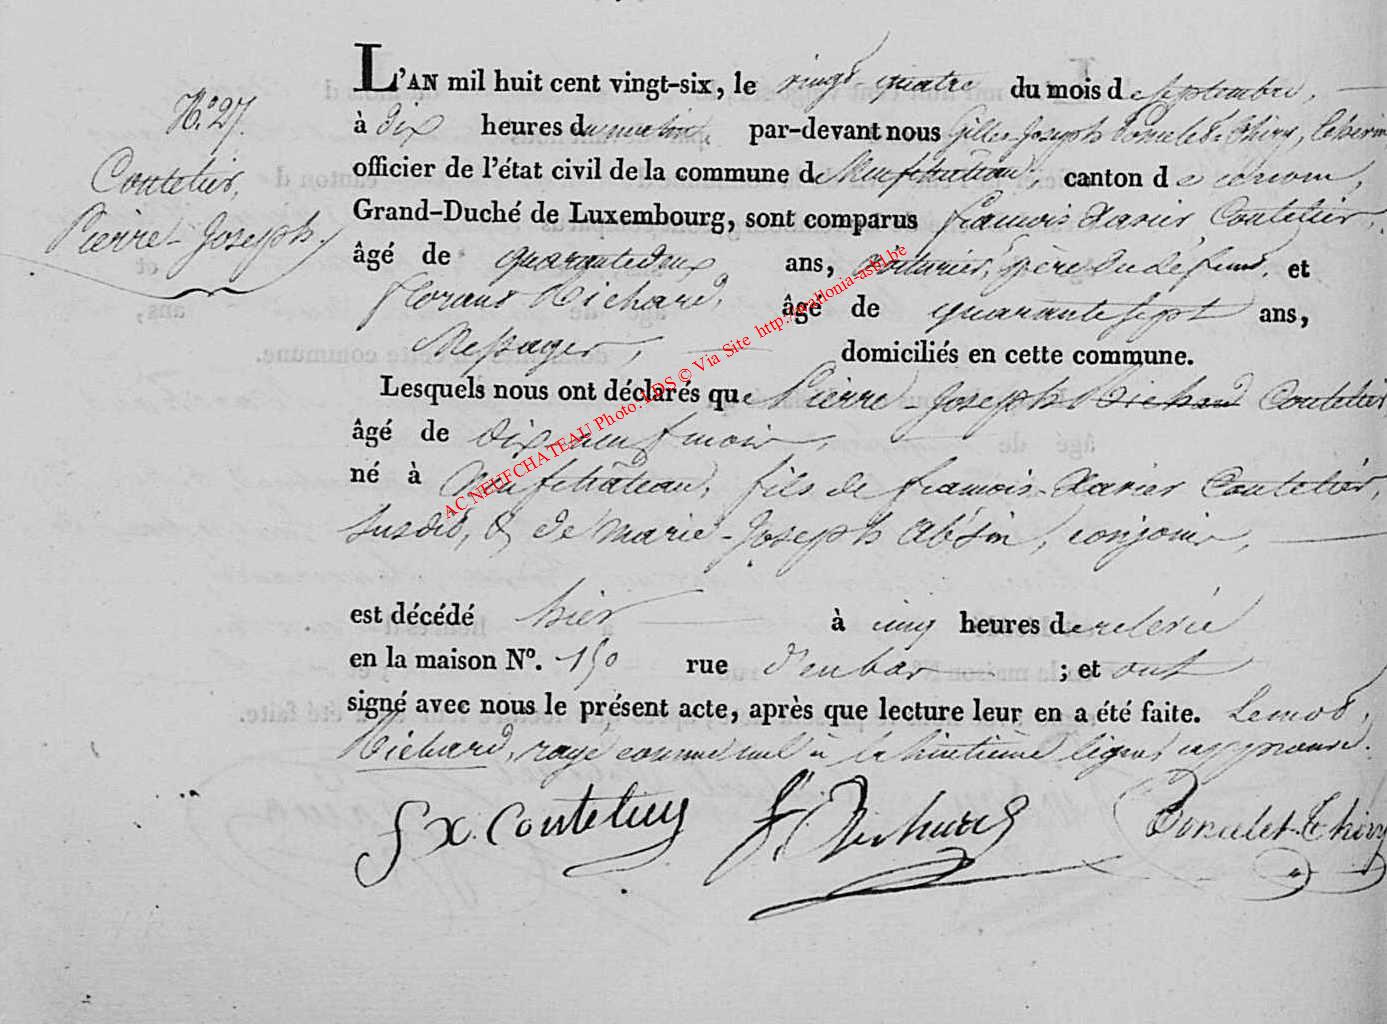 N.° 27.
Coutelier,
Pierre-Joseph
L'AN mil huit cent vingt-six, le vingt-quatre du mois de septembre,
à dix heures du matin, par-devant nous Gilles-Joseph Poncelet-Thiry,
officier de l'état civil de la commune de Neufchâteau, canton de
Grand-Duché de Luxembourg, sont comparus francois-Xavier Coutelier,
âgé de quarantedeux ans, voiturier, père du défunt, et
florent Richard, âgé de quarante sept ans,
Messager, domiciliés en cette commune.
Lesquels nous ont déclarés que Pierre-Joseph Richard Coutelier
âgé de dix neuf mois,
né à Neufchâteau, fils de francois-Xavier Coutelier,
susdit, & de Marie-Joseph conjoins,
est décédé hier à cinq heures de relevée
en la maison N°. 150 rue d'en bas ; et ont
signé avec nous le présent acte, après que lecture leur en a été faite. Le mot,
Richard, rayé comme nul à la huitième ligne, approuvé.
f x. Coutelier f. Richard Poncelet-Thiry
AC NEUFCHATEAU Photo. LDS © Via Site http://wallonia-asbl.be